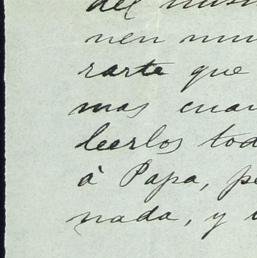 del mis
nen mu
rarte que
mas cuan
leerlos tod
à Papa, pe
nada, y